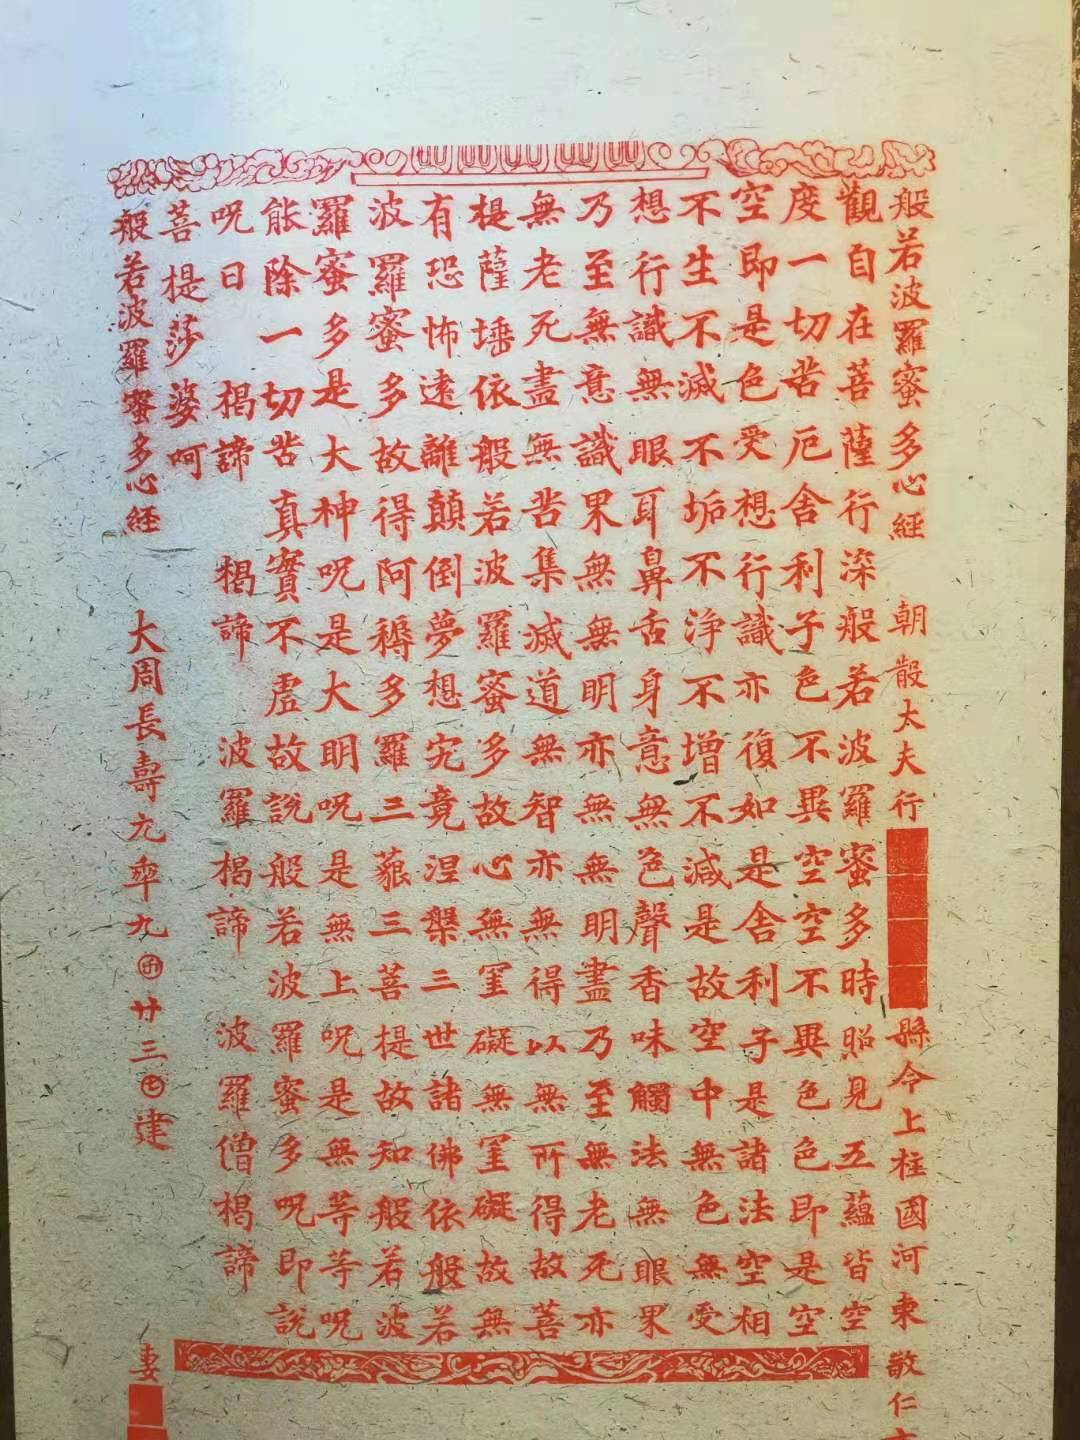 般若波羅蜜多心經 朝散太夫行 縣令上柱國河東敬仁
觀自在菩薩行深般若波羅蜜多時照見五蘊皆空
度一切苦厄舍利子色不異空空不異色色即是空
空即是色受想行識亦復如是舍利子是諸法空相
不生不滅不垢不淨不增不減是故空中無色無受
想行識無眼耳鼻舌身意無色聲香味觸法無眼果
乃至無意識果無無明亦無無明盡乃至無老死亦
無老死盡無苦集滅道無智亦無得以無所得故菩
提薩埵依般若波羅蜜多故心無罣礙無罣礙故無
有恐怖遠離顛倒夢想究竟涅槃三世諸佛依般若
波羅蜜多故得阿耨多羅三藐三菩提故知般若波
羅蜜多是大神呪是大明呪是無上呪是無等等呪
能除一切苦真實不虛故說般若波羅蜜多呪即說
呪曰 揭諦 揭諦 波羅揭諦 波羅僧揭諦
菩提莎婆呵
般若波羅蜜多心經 大周長壽元年九月廿三日建 妻